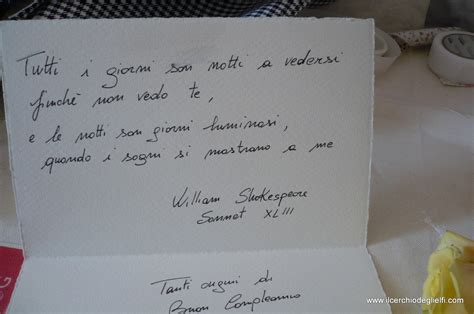 Tutti i giorni son notti a vedersi
finchè non vedo te,
e le notti son giorni luminosi,
quando i sogni si mostrano a me
William Shakespeare
Sonnet XLIII
Tanti auguri di
Buon Compleanno
www.ilcerchiodeglielfi.com